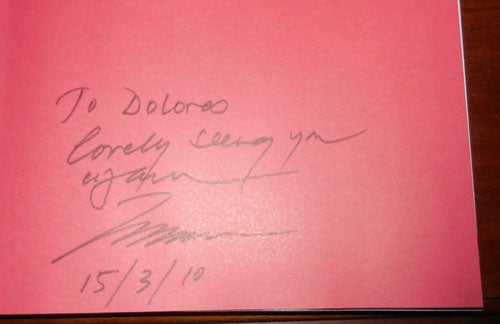 To Dolores
lovely seeing you
again
15/3/10